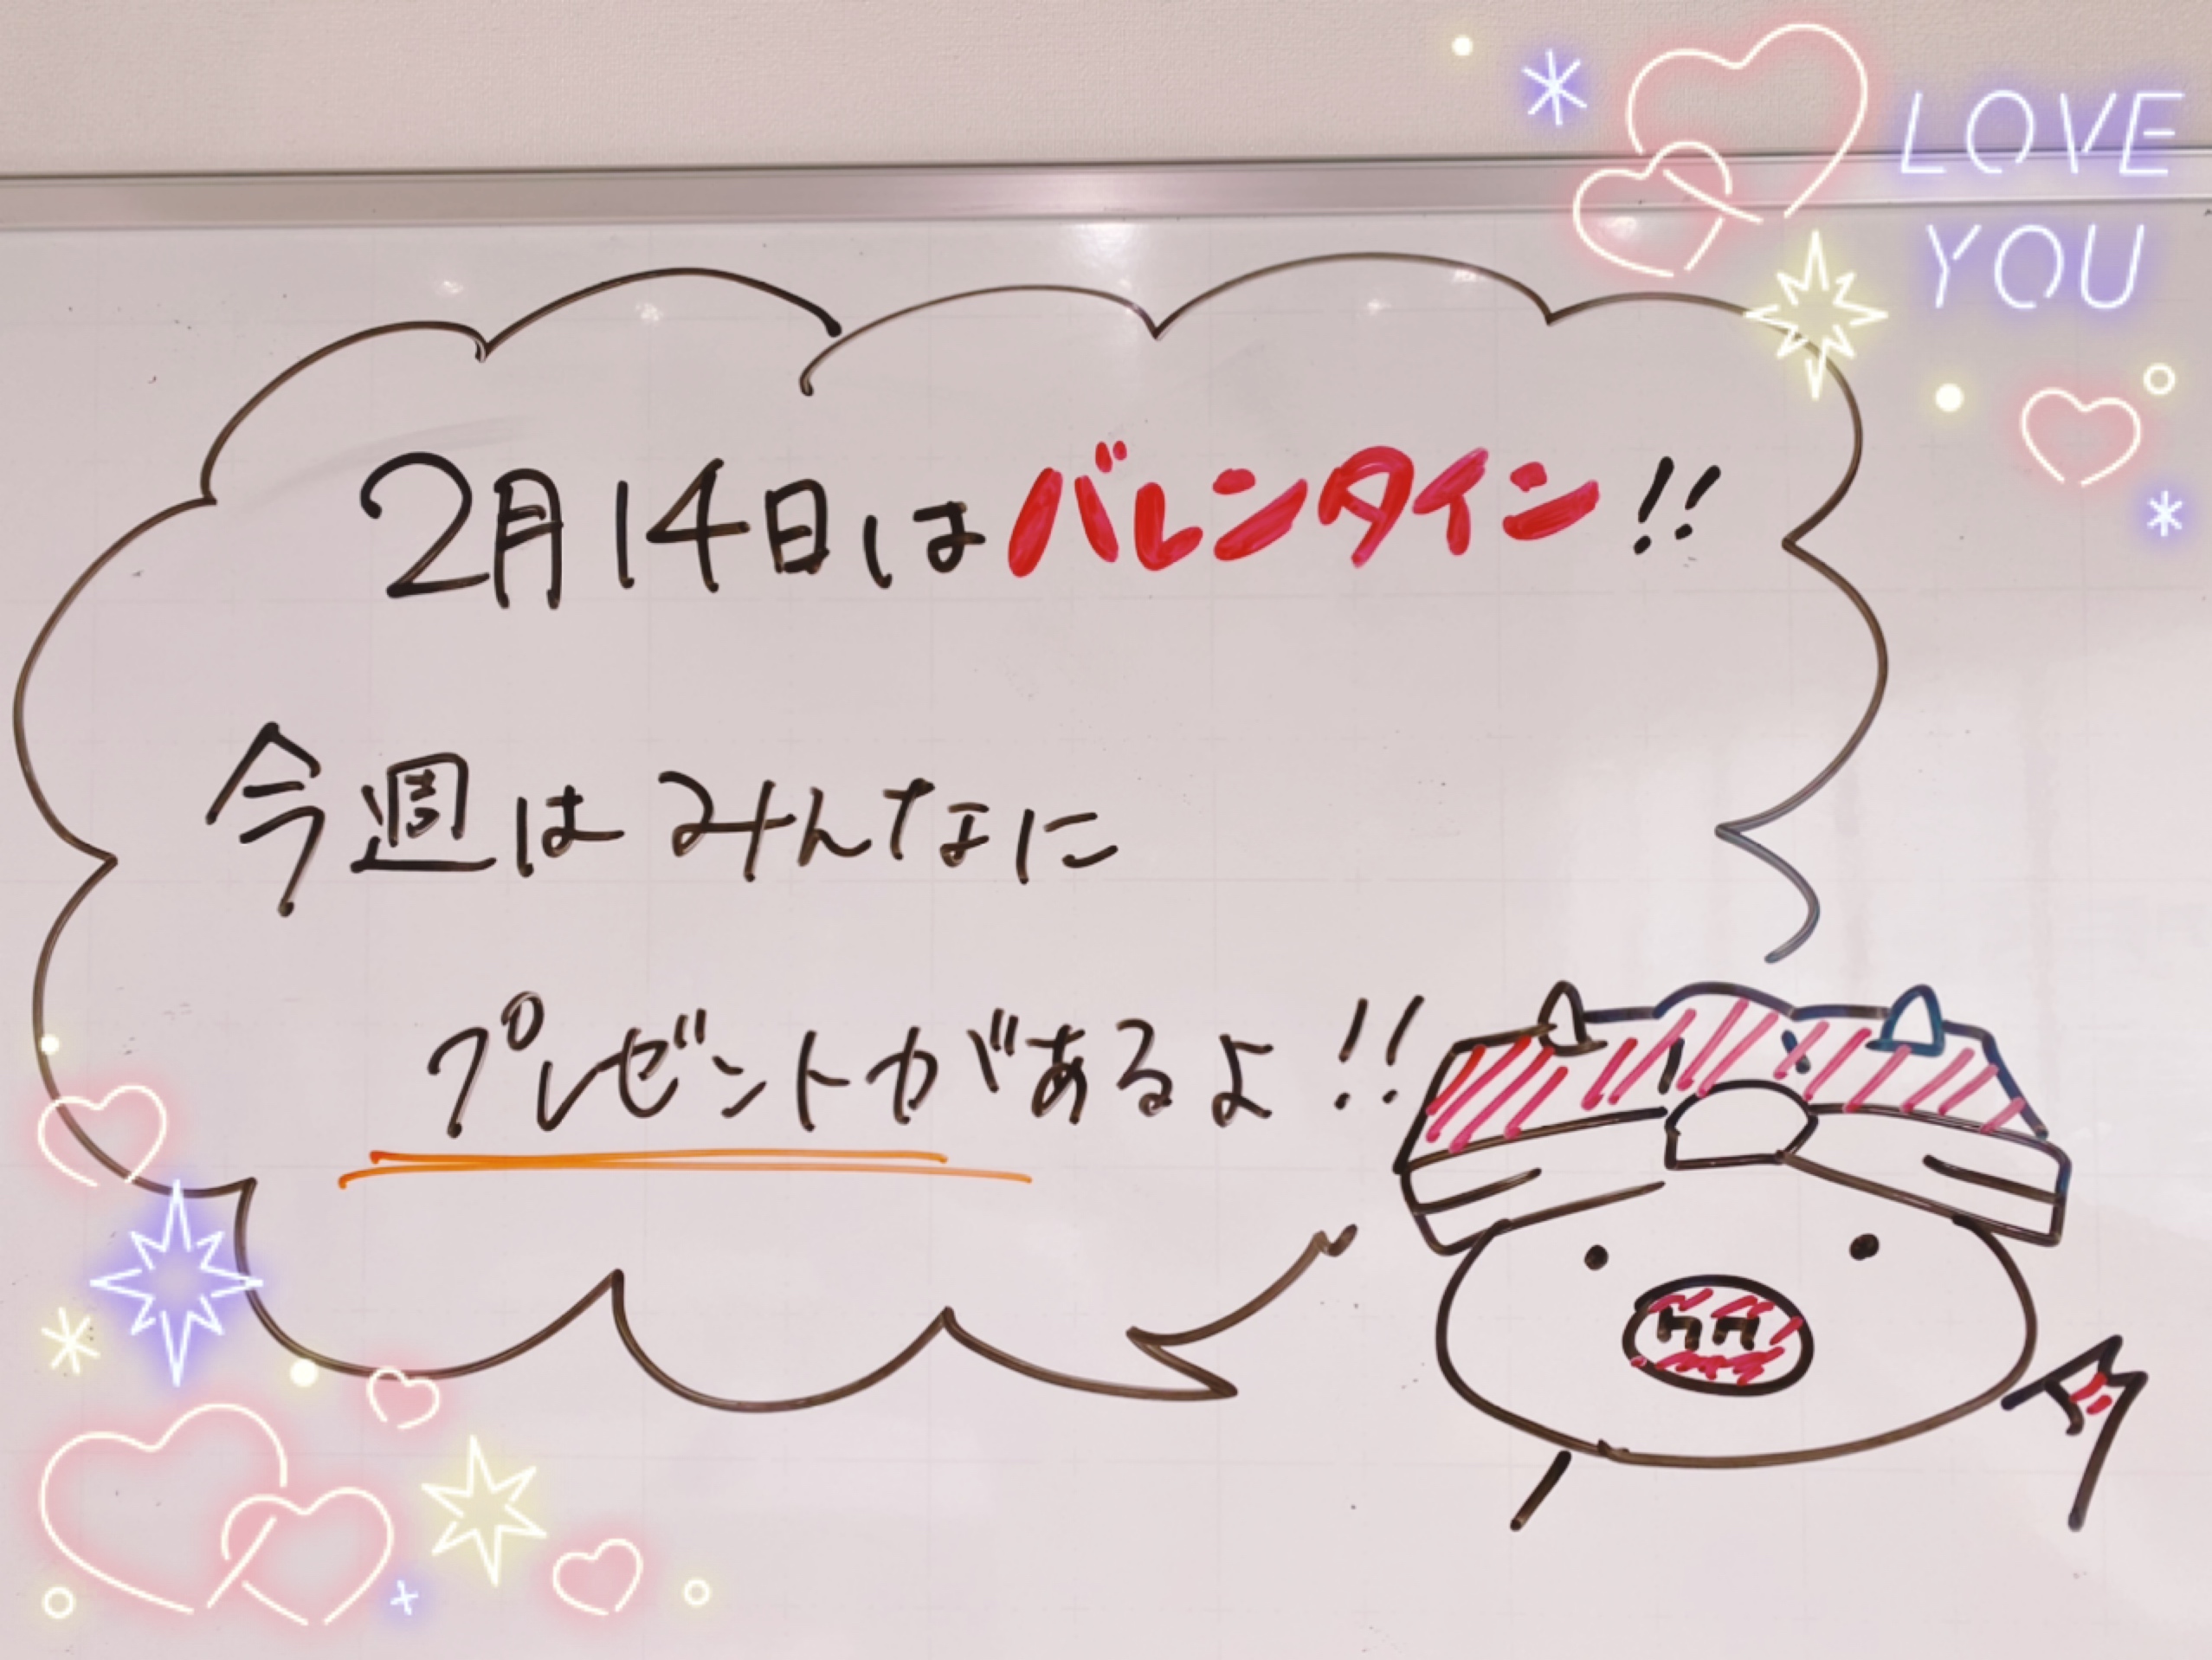 LOVE
YOU
2月14日はバレンタイン!!
今週はみんなに
プレゼントがあるよ!!